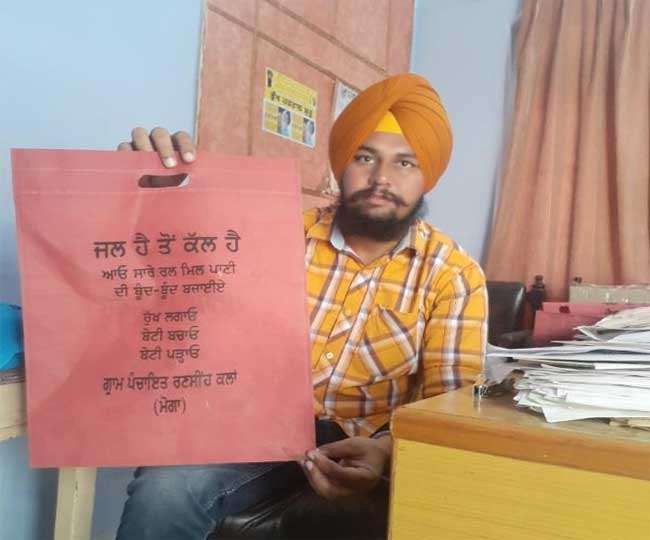 ਜਲ ਹੈ ਤੋਂ ਕੱਲ ਹੈ
ਆਓ ਸਾਰੇ ਰਲ ਮਿਲ ਪਾਣੀ
ਦੀ ਬੂੰਦ-ਬੂੰਦ ਬਚਾਈਏ
ਰੁੱਖ ਲਗਾਓ
ਬੇਟੀ ਬਚਾਓ
ਬੇਟੀ ਪੜ੍ਹਾਓ
ਗ੍ਰਾਮ ਪੰਚਾਇਤ ਰਣਸੀਂਹ ਕਲਾਂ
(ਮੋਗਾ)